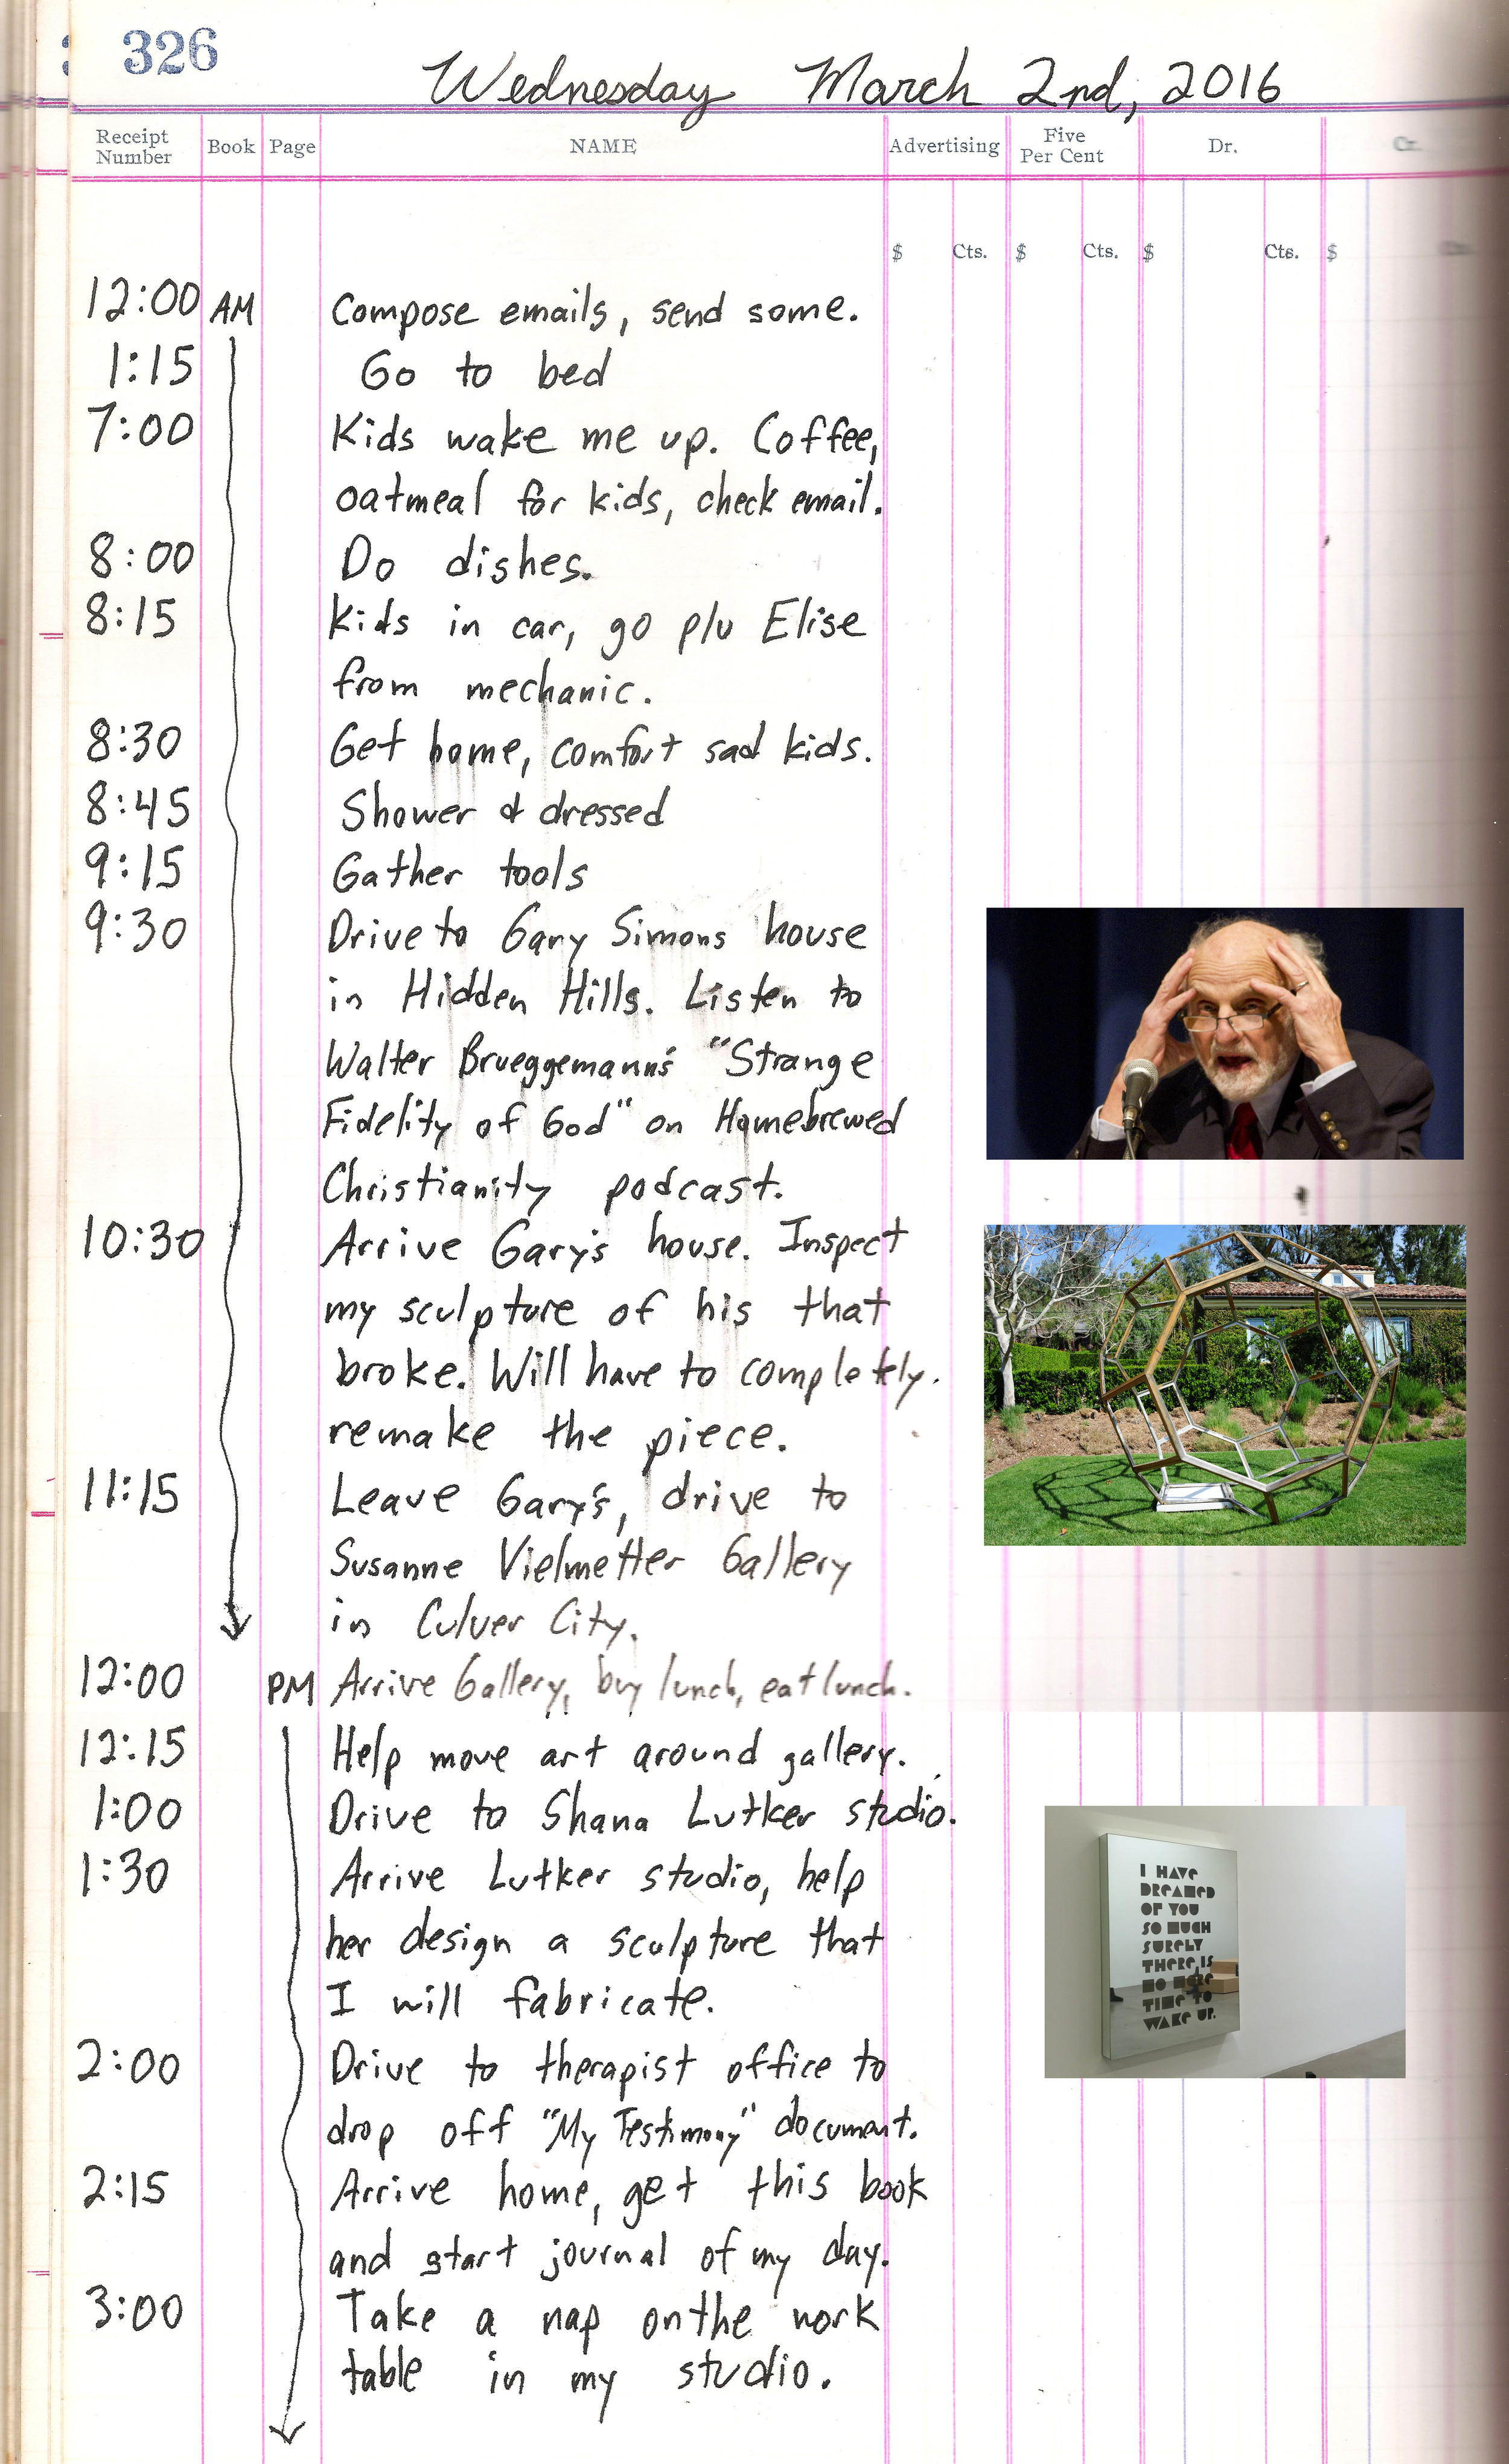 326
Wednesday March 2nd, 2016
Receipt Number Book Page NAME Advertising Five Per Cent Dr. Cr.
$ Cts. $ Cts. $ Cts. $
12:00 AM Compose emails, send some.
1:15 Go to bed
7:00 Kids wake me up. Coffee,
oatmeal for kids, check email.
8:00 Do dishes.
8:15 Kids in car, go p/u Elise
from mechanic.
8:30 Get home, comfort sad kids.
8:45 Shower & dressed
9:15 Gather tools
9:30 Drive to Gary Simons house
in Hidden Hills. Listen to
Walter Brueggemann's "Strange
Fidelity of God" on Homebrewed
Christianity podcast.
10:30 Arrive Gary's house. Inspect
my sculpture of his that
broke. Will have to completely.
remake the piece.
11:15 Leave Gary's, drive to
Susanne Vielmetter Gallery
in Culver City.
12:00 PM Arrive Gallery, buy lunch, eat lunch.
12:15 Help move art around gallery.
1:00 Drive to Shana Lutker studio.
1:30 Arrive Lutker studio, help
her design a sculpture that
I will fabricate.
2:00 Drive to therapist office to
drop off "My Testimony" document.
2:15 Arrive home, get this book
and start journal of my day.
3:00 Take a nap on the work
table in my studio.
I HAVE
DREAMED
OF YOU
SO MUCH
SURELY
THERE IS
NO MORE
TIME TO
WAKE UP.